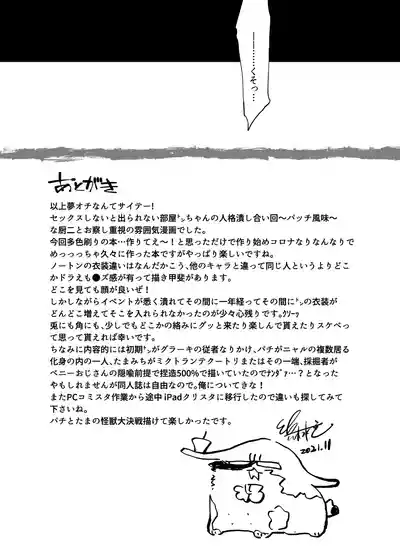 ………くそっ…
あとがき
以上夢オチなんてサイテー!
セックスしないと出られない部屋㌧ちゃんの人格潰し合い回〜パッチ風味〜
な厨二とお察し重視の雰囲気漫画でした。
今回多色刷りの本…作りてえ〜!と思っただけで作り始めコロナなりなんなりで
めっっっちゃ久々に作った本ですがやっぱり楽しいですね。
ノートンの衣装違いはなんだかこう、他のキャラと違って同じ人というよりどこ
かドラえ●ズ感が有って描き甲斐があります。
どこを見ても顔が良いぜ!
しかしながらイベントが悉く潰れてその間に一年経ってその間に㌧の衣装が
どんどこ増えてそこを入れられなかったのが少々心残りです。
兎にも角にも、少しでもどこかの絡みにグッと来たり楽しんで貰えたりスケベっ
て思って貰えれば幸いです。
ちなみに内容的には初期㌧がグラーキの従者なりかけ、パチがニャルの複数居る
化身の内の一人、たまみちがミクトランテクートリまたはその一端、採掘者が
ペニーおじさんの隠喩前提で捏造500%で描いていたのでナンダァ…?となった
やもしれませんが同人誌は自由なので。俺についてきな!
またPCコミスタ作業から途中iPadクリスタに移行したので違いも探してみて
下さいね。
パチとたまの怪獣大決戦描けて楽しかったです。
2021.11